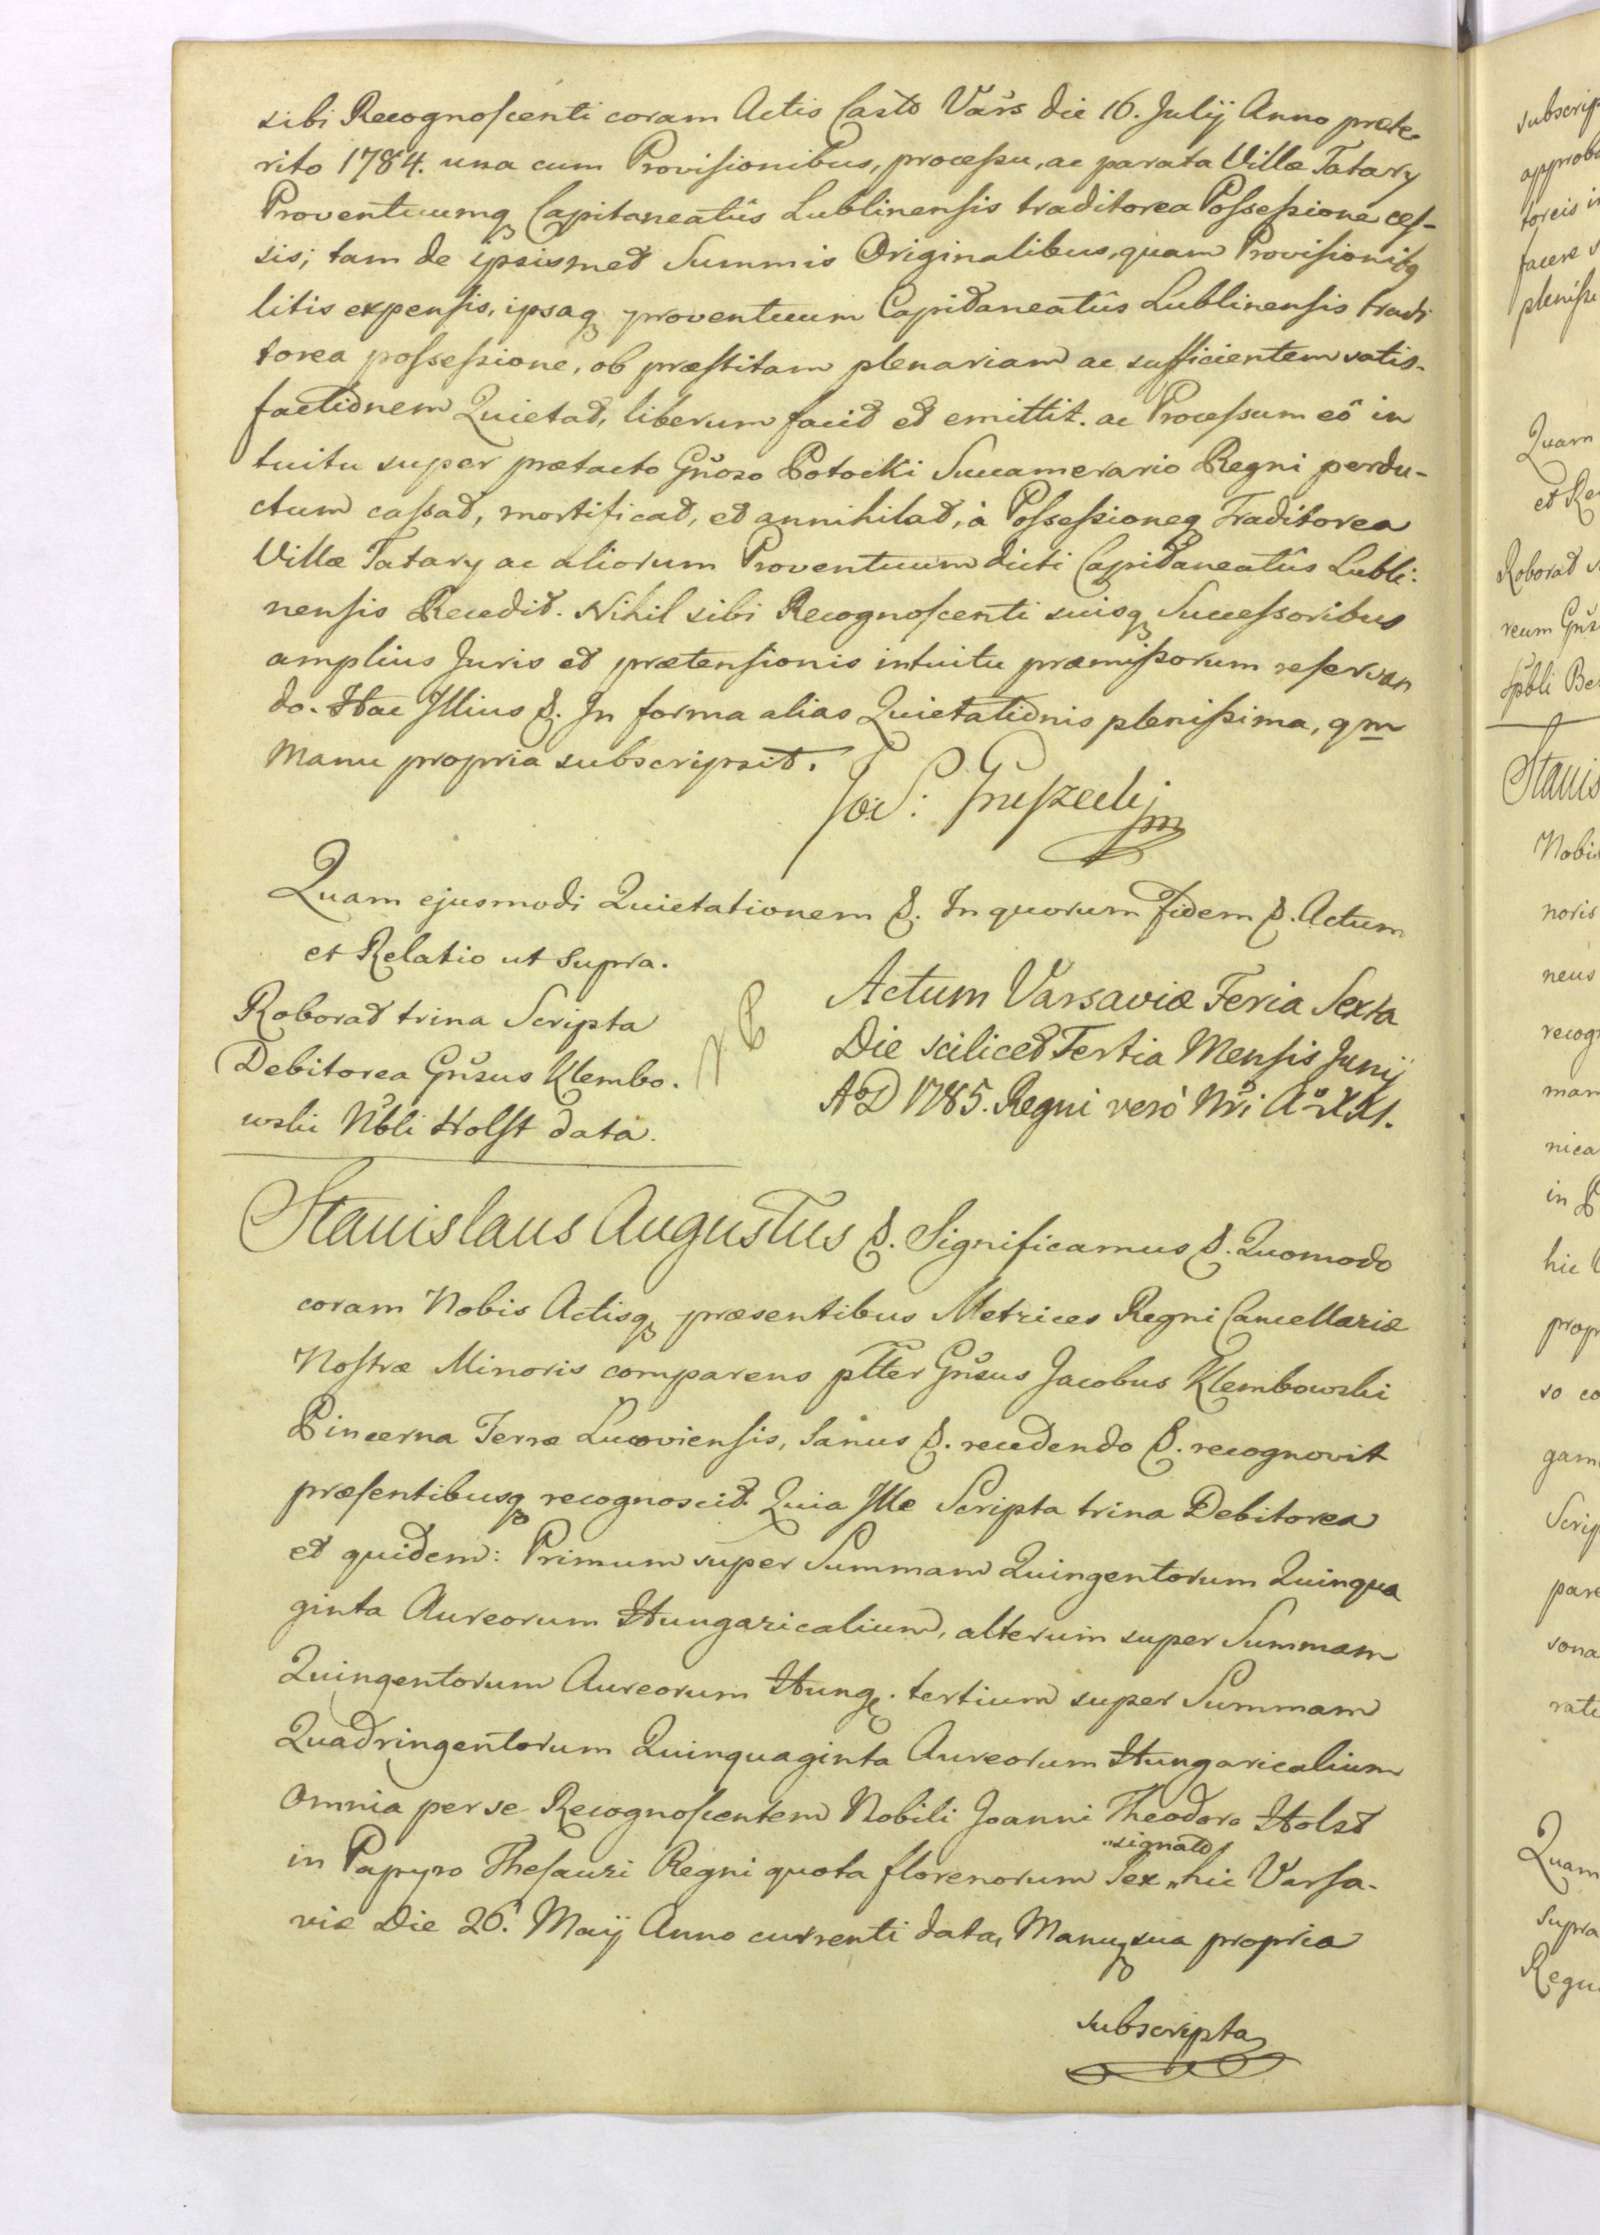 sibi Recognoscenti coram Actis Castr Vars die 16. Julij Anno præte
rito 1784. una cum Provisionibus, processu, ac parata Villæ Tatary
Proventuumq Capitaneatûs Lublinensis traditorea Possessione ces-
sis; tam de ipsismet Summis Originalibus, quam Provisionibq
litis expensis, ipsaq proventuum Capitaneatûs Lublinensis tradi
torea possessione, ob præstitam plenariam ac sufficientem satis-
factionem Quietat, liberum facit et emittit. ac Processum eô in
tuitu super prætacto Gnoso Potocki Succamerario Regni perdu-
ctum cassat, mortificat, et annihilat, à Possessioneq Traditorea
Villæ Tatary ac aliorum Proventuum dicti Capitaneatûs Lubli:
nensis Recedit. Nihil sibi Recognoscenti suisq Successoribus
amplius Juris et prætensionis intuitu præmissorum reservan
do. Hac Illius &. In forma alias Quietationis plenissima, qm
Manu propria subscripsit.
Quam ejusmodi Quietationem &. In quorum Fidem &. Actum
et Relatio ut Supra.
Roborat trina Scripta
Debitorea Gnsus Klembo.
wski Nbli Holst data.
Actum Varsaviæ Feria Sexta
Die scilicet Tertia Mensis Junij
AoD 1785. Regni verò Nri Ao XXI.
Stanislaus Augustus &. Significamus &. Quomodo
coram Nobis Actisq præsentibus Metrices Regni Cancellariæ
Nostræ Minoris comparens pltter Gnsus Jacobus Klembowski
Pincerna Terræ Lucoviensis, Sanus &. recedendo &. recognovit
præsentibusq recognoscit. Quia Ille Scripta trina Debitorea
et quidem: Primum super Summam Quingentorum Quinqua
ginta Aureorum Hungaricalium, alterum super Summam
Quingentorum Aureorum Hung. tertium super Summam
Quadringentorum Quinquaginta Aureorum Hungaricalium
Omnia per se Recognoscentem Nobili Joanni Theodoro Holst
signato
in Papyro Thesauri Regni quota florenorum Sex hic Varsa-
viæ Die 26. Maij Anno currenti data, Manuq sua propria
subscripta